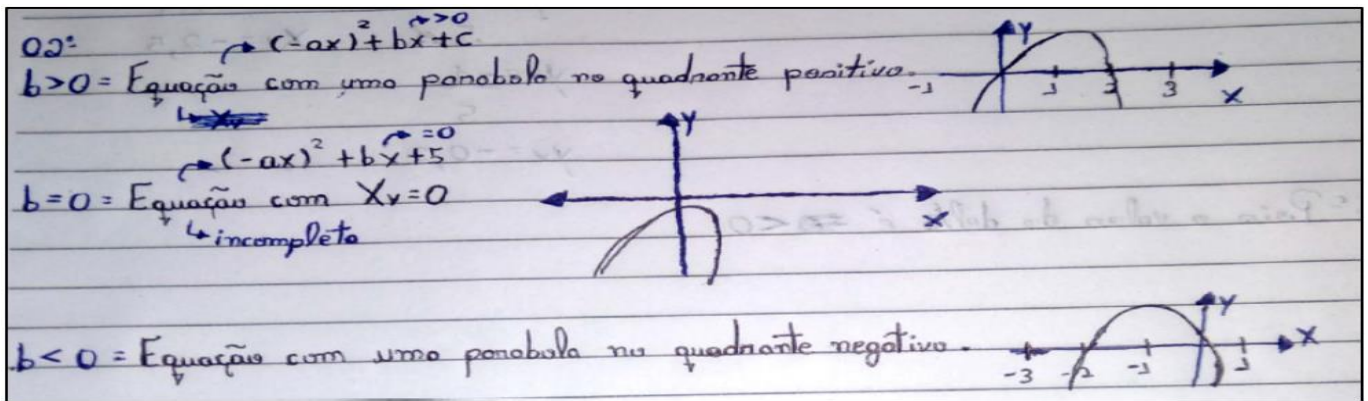 02:
(-ax)² + bx + c
→ > 0
b > 0 = Equação com uma parabola no quadrante positivo.
Y
-1 1 2 3
X
(-ax)² + bx + 5
→ = 0
b = 0 = Equação com Xv = 0
↳ incompleta
Y
X
b < 0 = Equação com uma parabola no quadrante negativo.
Y
X
-3 -2 -1 1